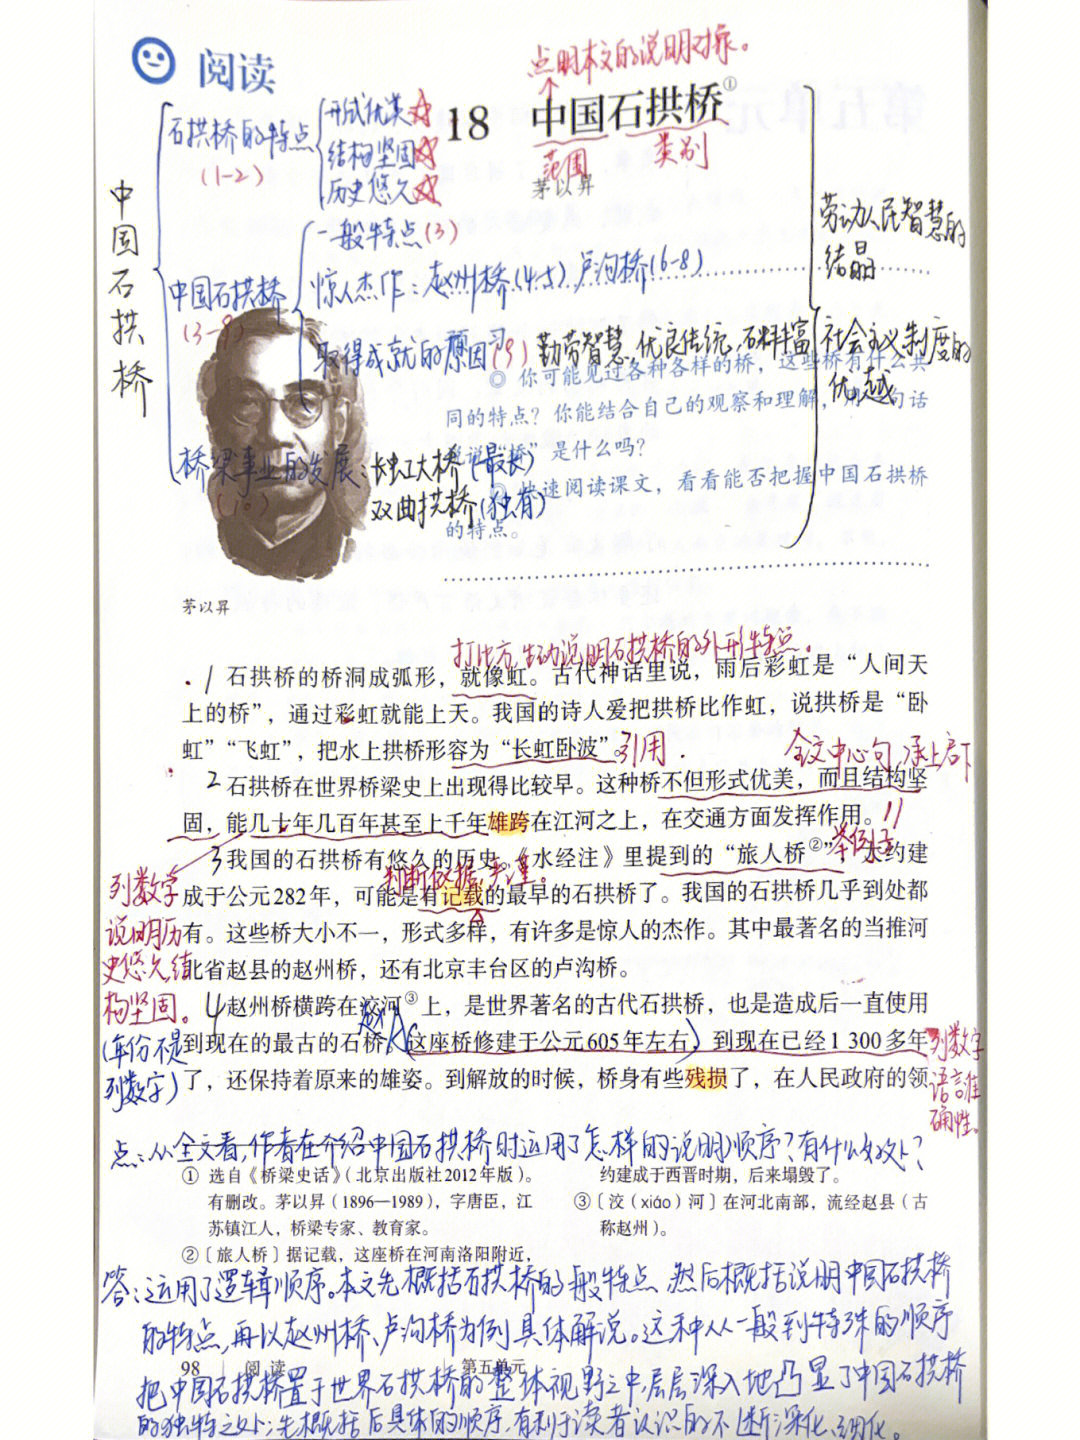 点明本文的说明对象。
阅读
18 中国石拱桥①
范围
类别
茅以昇
中国石拱桥
石拱桥的特点
(1-2)
形式优美
结构坚固
历史悠久
中国石拱桥
(3-9)
一般特点(3)
惊人杰作：赵州桥(4-5) 卢沟桥(6-8)
取得成就的原因(9) 勤劳智慧，优良传统，石料丰富
桥梁事业的发展：长虹大桥(最长)
(10)
双曲拱桥(独有)
劳动人民智慧的
结晶
社会主义制度的
优越
◎ 你可能见过各种各样的桥，这些桥有什么共
同的特点？你能结合自己的观察和理解，用一句话
说说“桥”是什么吗？
◎ 快速阅读课文，看看能否把握中国石拱桥
的特点。
茅以昇
打比方，生动说明石拱桥的外形特点。
1 石拱桥的桥洞成弧形，就像虹。古代神话里说，雨后彩虹是“人间天
上的桥”，通过彩虹就能上天。我国的诗人爱把拱桥比作虹，说拱桥是“卧
虹”“飞虹”，把水上拱桥形容为“长虹卧波”。引用.
全文中心句，承上启下
2 石拱桥在世界桥梁史上出现得比较早。这种桥不但形式优美，而且结构坚
固，能几十年几百年甚至上千年雄跨在江河之上，在交通方面发挥作用。//
举例子
3 我国的石拱桥有悠久的历史。《水经注》里提到的“旅人桥②”，大约建
判断依据，严谨。
成于公元282年，可能是有记载的最早的石拱桥了。我国的石拱桥几乎到处都
有。这些桥大小不一，形式多样，有许多是惊人的杰作。其中最著名的当推河
北省赵县的赵州桥，还有北京丰台区的卢沟桥。
列数字
说明历
史悠久,结
构坚固。
(年份不是
列数字)
4 赵州桥横跨在洨河③上，是世界著名的古代石拱桥，也是造成后一直使用
到现在的最古的石桥。(这座桥修建于公元605年左右)到现在已经1 300多年
了，还保持着原来的雄姿。到解放的时候，桥身有些残损了，在人民政府的领
列数字
语言准
确性。
点：从全文看，作者在介绍中国石拱桥时运用了怎样的说明顺序？有什么好处？
① 选自《桥梁史话》（北京出版社2012年版）。
有删改。茅以昇（1896—1989），字唐臣，江
苏镇江人，桥梁专家、教育家。
②〔旅人桥〕据记载，这座桥在河南洛阳附近，
约建成于西晋时期，后来塌毁了。
③〔洨（xiáo）河〕在河北南部，流经赵县（古
称赵州）。
答：运用了逻辑顺序。本文先概括石拱桥的一般特点，然后概括说明中国石拱桥
的特点，再以赵州桥、卢沟桥为例具体解说。这种从一般到特殊的顺序
98 阅 读 第五单元
把中国石拱桥置于世界石拱桥的整体视野之中，层层深入地凸显了中国石拱桥
的独特之处；先概括后具体的顺序，有利于读者认识的不断深化、细化。